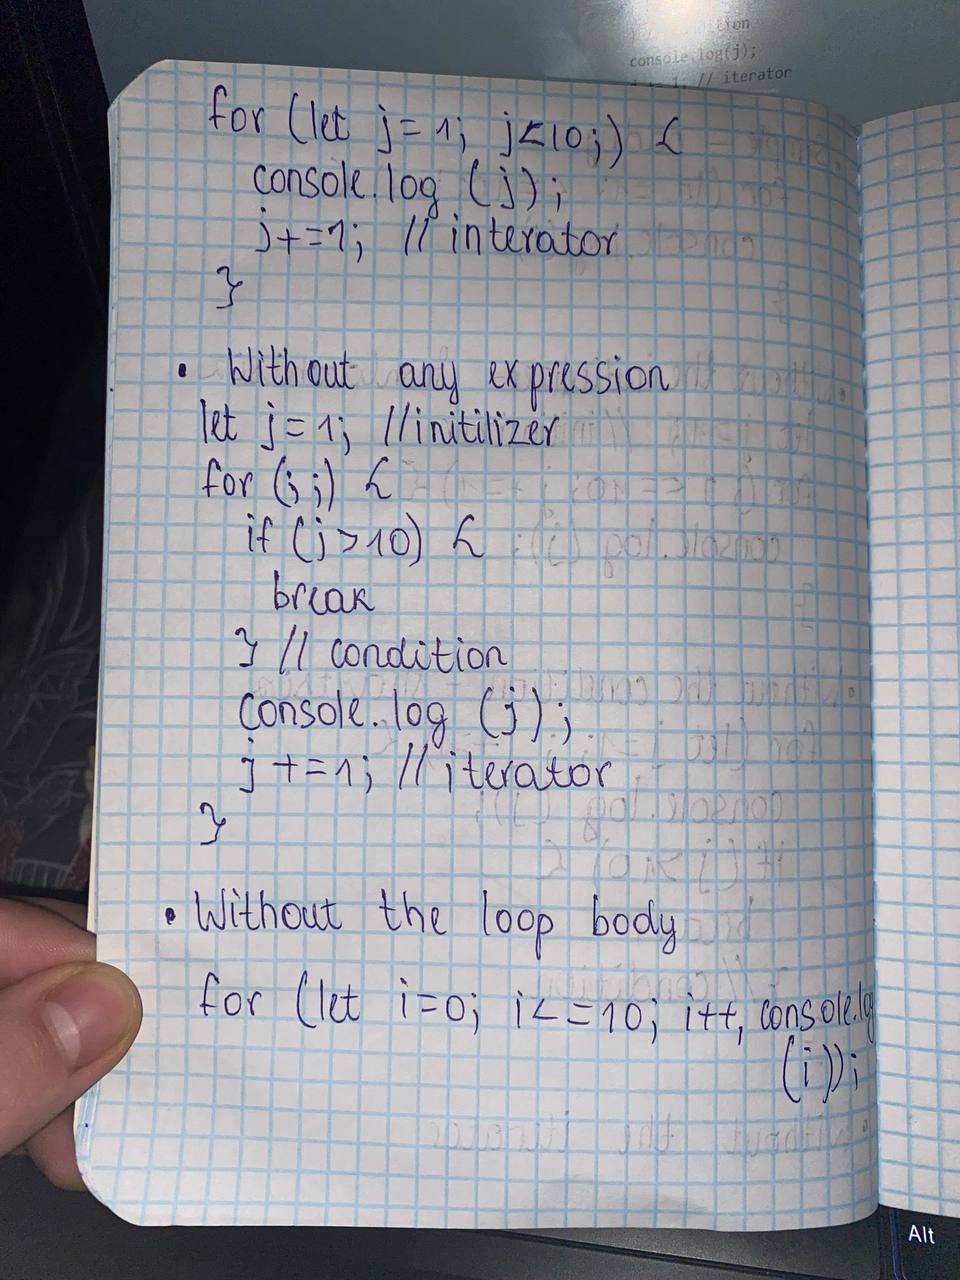 tion
console.log(j);
1; // iterator
for (let j=1; j<10;) {
console.log (j);
j+=1; // interator
}
• Without any expression
let j=1; //initilizer
for (;;) {
if (j>10) {
break
} // condition
console.log (j);
j+=1; // iterator
}
• Without the loop body
for (let i=0; i<=10; i++, console.log
(i));
Alt